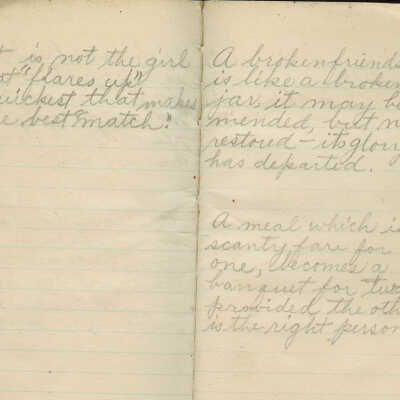 t is not the girl
at "flares up"
quickest that makes
e best "match."
A broken friends
is like a broken
jar it may be
mended, but n
restored – its glory
has departed.
A meal which is
scanty fare for
one, becomes a
banquet for two
provided the oth
is the right person